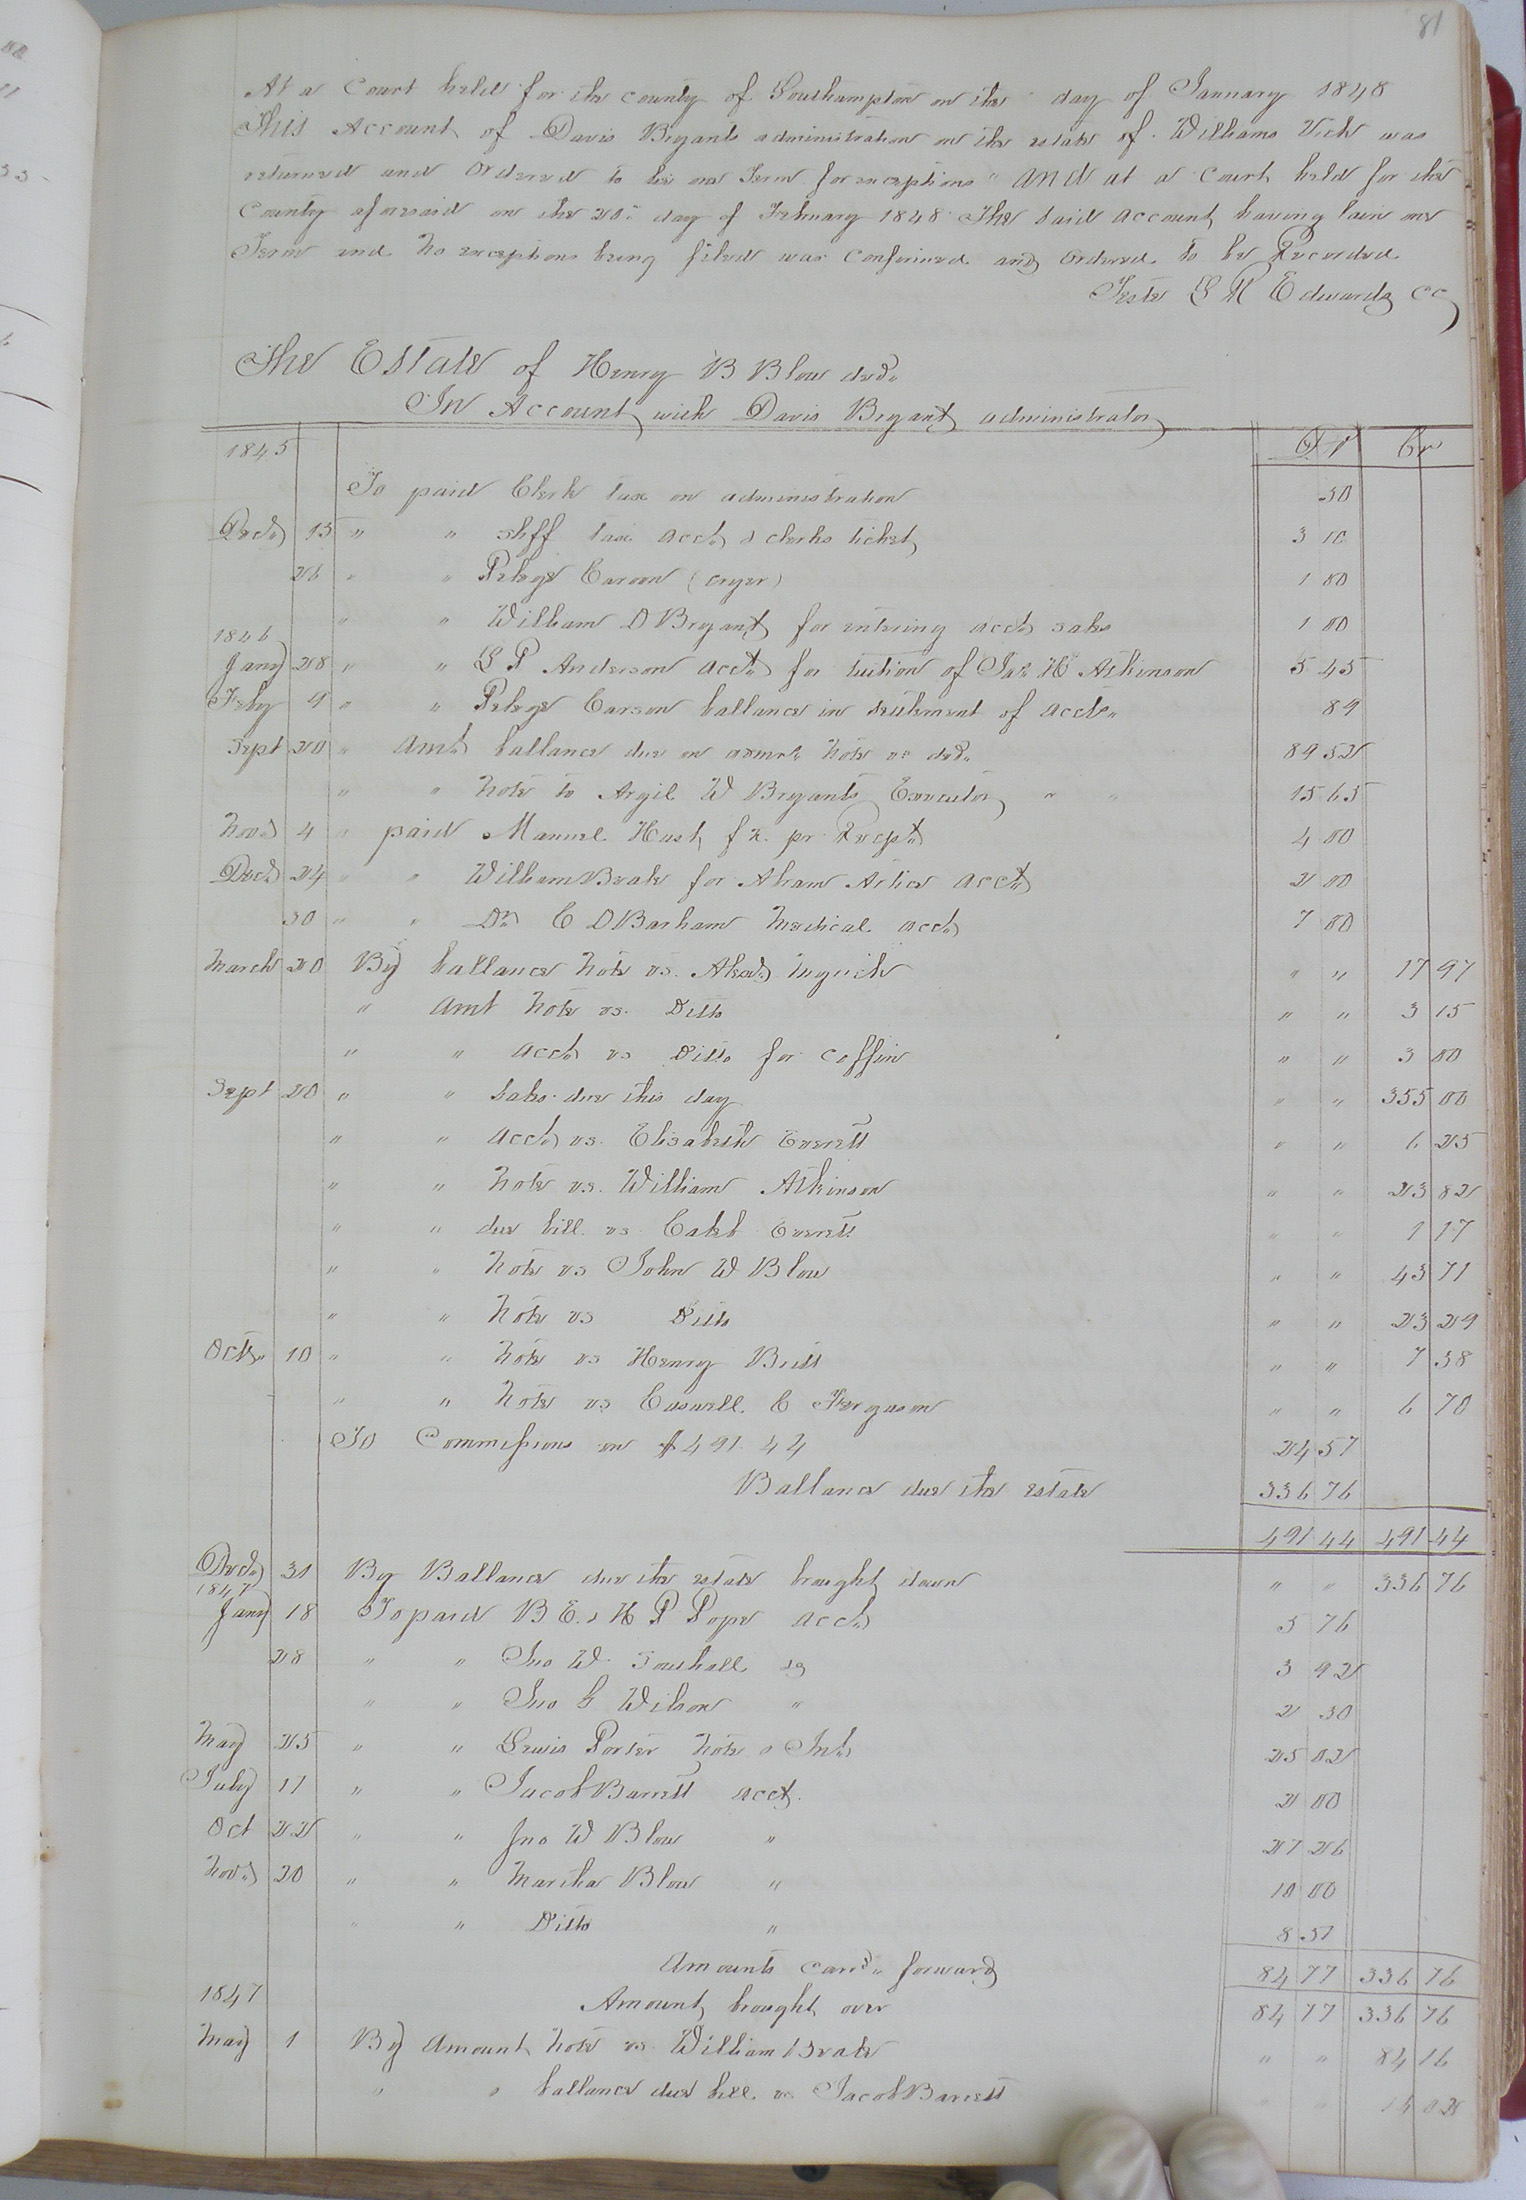 81
At a Court held for the county of Southampton on the day of January 1848
This Account of Davis Bryants administration on the estate of Williams Vick was
returned and Ordered to lie one Term for exceptions " And at a Court held for the
County aforesaid on the 20th day of February 1848 The said account having lain one
Term and no exceptions being filed was Confirmed and Ordered to be Recorded
Teste L R Edwards CC
The Estate of Henry B Blow decd.
In Account with Davis Bryant administrator
1845 Dr Cr
To paid Clerk tax on administration 50
Decr 13 " " shff tax acct & clerks ticket 3 10
26 " " Pelege Carson (cryer) 1 00
" " William D Bryant for entering acct sales 1 00
1846
Jany 28 " " L P Anderson acct for tuition of Jas. H Atkinson 5 45
Feby 9 " " Pelege Carson ballance in settlement of accts. 89
Sept 20 " Amt ballance due on admrs. note vs decd. 89 52
" " note to Argil W Bryants Executor " " 15 65
Novr 4 " paid Manuel Hast f n. pr Recpt 4 00
Decr 24 " " William Beale for Abram Artice acct 2 00
30 " " Dr C D Barham Medical acct 7 00
March 20 By ballance note vs. Alexr. " " 17 97
" Amt note vs. Ditto " " 3 15
" " acct vs Ditto for coffin " " 3 00
Sept 20 " " sales due this day " " 355 00
" " acct vs. Elisabeth Everett " " 6 25
" " note vs. William Atkinson " " 23 82
" " due bill vs Caleb Everett " " 1 17
" " note vs John W Blow " " 43 71
" " note vs Ditto " " 23 29
Octr. 10 " " note vs Henry Britt " " 7 38
" " note vs Caswell C Ferguson " " 6 70
To Commissions on $491.44 24 57
Ballance due the estate 336 76
491 44 491 44
Decr 31 By Ballance due the estate brought down " " 336 76
1847
Jany 18 To paid B E. & H P Pope acct 5 76
28 " " Jno W Southall do 3 92
" " Jno G Wilson " 2 30
May 25 " " Lewis Porter note & Int 25 02
July 17 " " Jacob Barrett acct. 2 00
Oct 22 " " Jno W Blow " 27 26
Novr 20 " " Martha Blow " 10 00
" " Ditto " 8 51
Amounts carrd. forward 84 77 336 76
1847 Amount brought over 84 77 336 76
May 1 By Amount note vs William Beale " " 84 16
" " ballance due bill vs Jacob Barrett " " 02